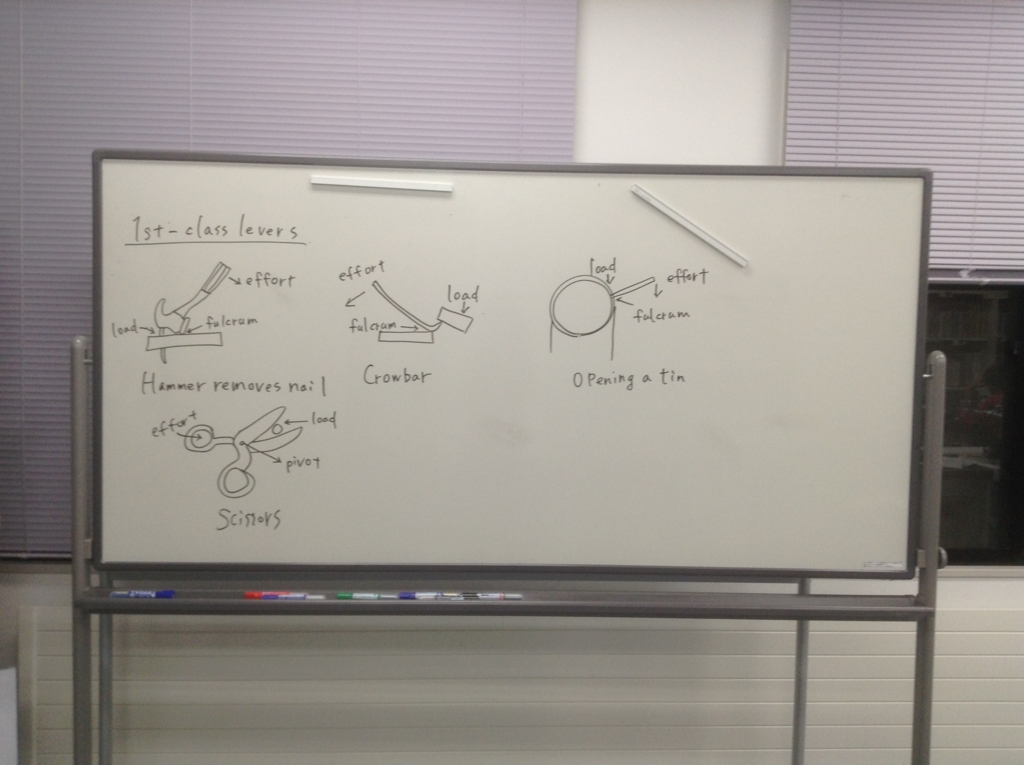 1st-class levers
effort
load
fulcrum
Hammer removes nail
effort
load
fulcrum
Crowbar
load
effort
fulcrum
Opening a tin
effort
load
pivot
Scissors